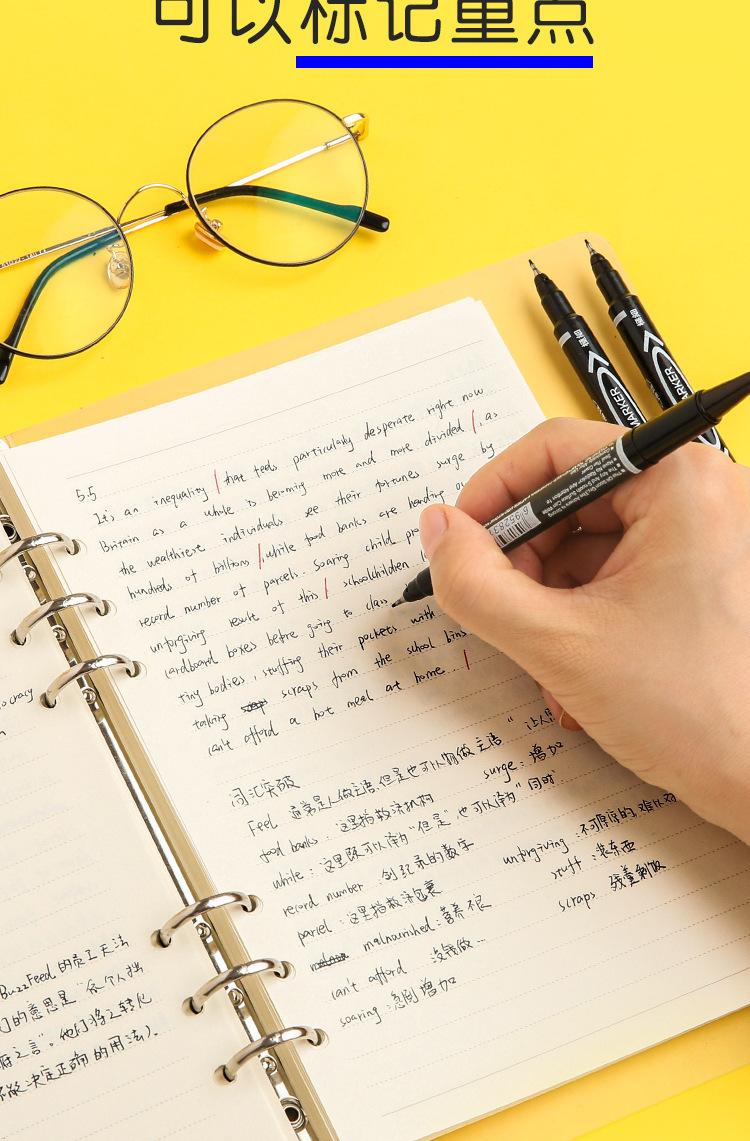 可以标记重点
5.5
It's an inequality that feels particularly desperate right now
Britain as a whole is becoming more and more divided, as
the wealthiest individuals see their fortunes surge by
hundreds of billions, while food banks are handing
record number of parcels. Soaring child
unforgiving result of this schoolchildren
cardboard boxes before going to class
tiny bodies, stuffing their pockets with
taking scraps from the school bins
can't afford a hot meal at home.
词汇突破
Feel 通常是人做主语,但是也可以物做主语"
food banks: 这里指救济机构 surge: 增加
while: 这里既可以译为"但是",也可以译为"同时".
record number 创纪录的数字
parcel: 这里指救济包裹 unforgiving 不可原谅的,
malnourished: 营养不良 stuff: 装东西
can't afford 没钱做… scraps
soaring: 急剧增加
BuzzFeed 的员工无法
的意思是"
决定正确的用法).
MARKER
MARKER